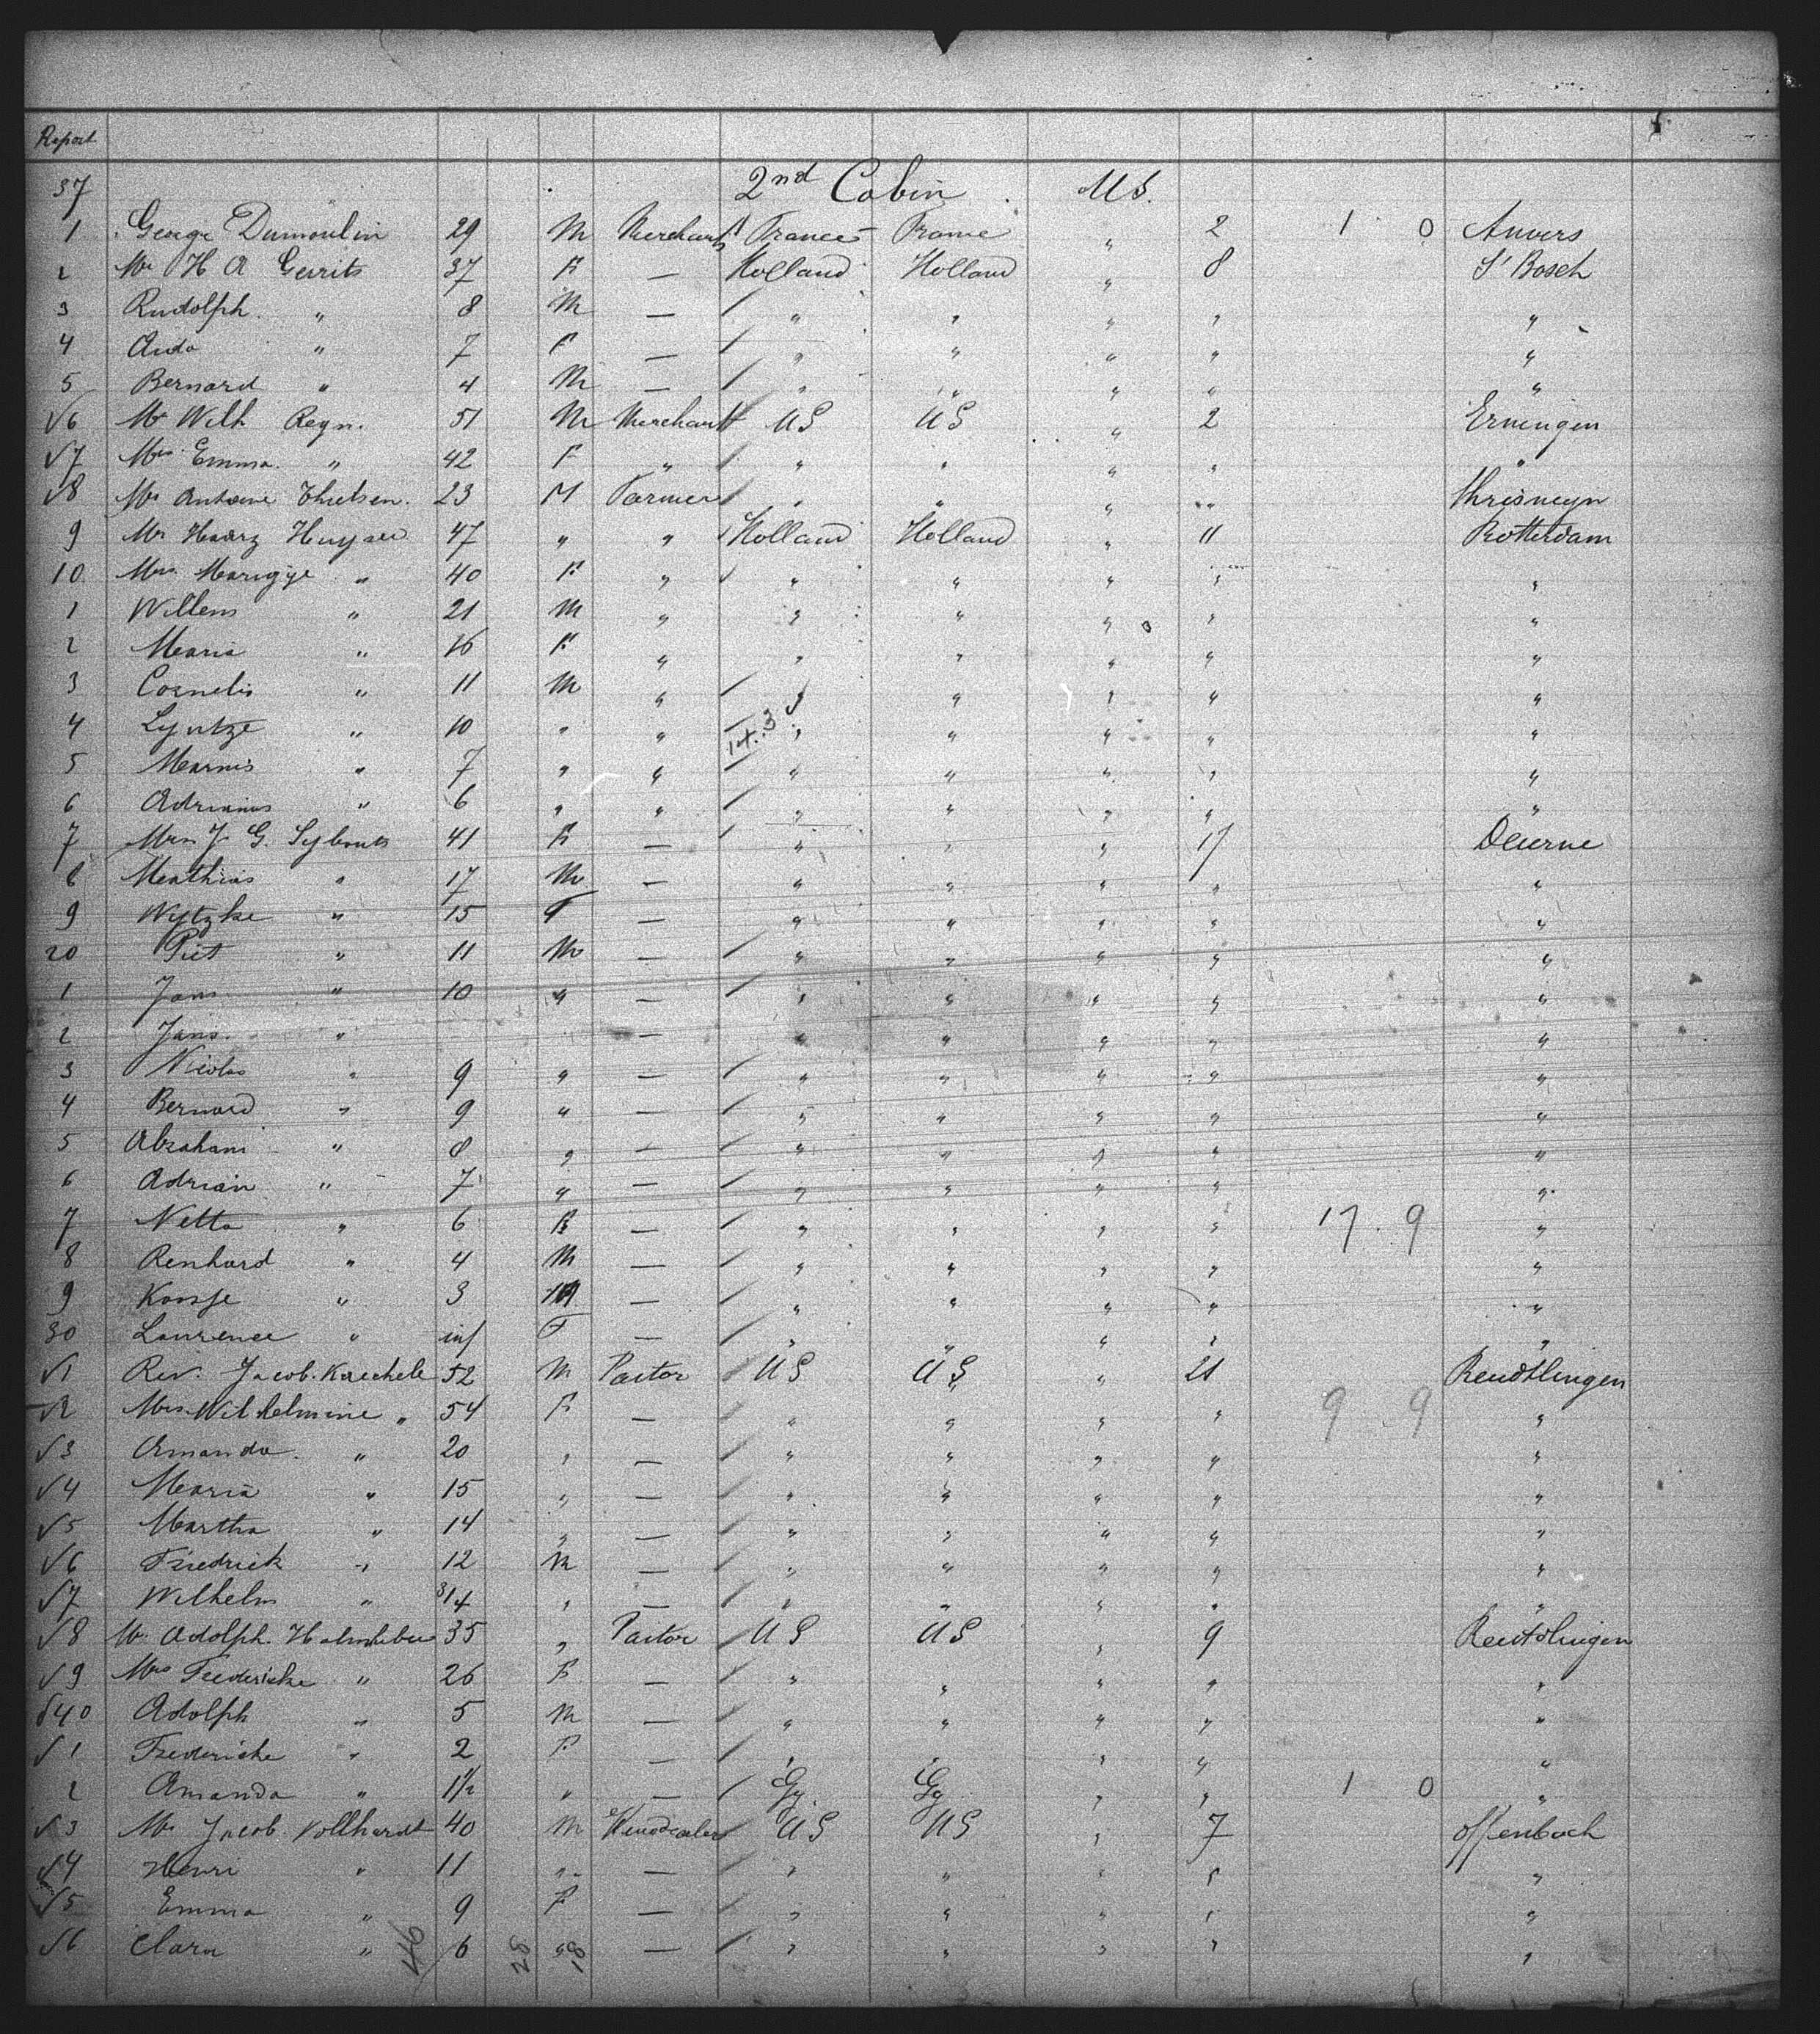 Report
37 2nd Cabin U S.
1 George Dumoulin 29 M Merchant France France " 2 1 0 Anvers
2 Mr H A Gerrits 37 F — Holland Holland " 8 S' Bosch
3 Rudolph " 8 M — " " " " "
4 Aida " 7 F — " " " " "
5 Bernard " 4 M — " " " " "
√6 Mr Wilh Regn. 51 M Merchant US US " 2 Erningen
√7 Mrs Emma " 42 F " " " " " "
√8 Mr Antoine 23 M Farmer " " " "
9 Mr 47 " " Holland Holland " 11 Rotterdam
10 Mrs. Marigje " 40 F " " " " " "
1 Willem " 21 M " " " " " "
2 Maria " 16 F " " " " " "
3 Cornelis " 11 M " " " " " "
4 Lyntze " 10 " " " " " " "
5 Marnis " 7 " " " " " " "
6 Adrianus " 6 " " " " " " "
7 Mrs J. G. Sybouts 41 F — " " " 17 Deurne
8 Mathias " 17 M — " " " " "
9 Wytzke " 15 F — " " " " "
20 Piet " 11 M — " " " " "
1 Jan " 10 " — " " " " "
2 Jans. " — " " " " "
3 Nicolas " 9 " — " " " " "
4 Bernard " 9 " — " " " " "
5 Abraham " 8 " — " " " " "
6 Adrian " 7 " — " " " " "
7 Netta " 6 F — " " " " 17. 9 "
8 Renhard " 4 M — " " " " "
9 Korsje " 3 — " " " " "
30 Laurence " inf F — " " " " "
√1 Rev. Jacob. Kaechele 52 M Pastor US US " 21 Reudtlingen
√2 Mrs. Wilhelmine " 54 F — " " " " 9 9 "
√3 Amanda " 20 " — " " " " "
√4 Maria " 15 " — " " " " "
√5 Martha " 14 " — " " " " "
√6 Friedrick " 12 M — " " " " "
√7 Wilhelm " " — " " " " "
√8 Mr. Adolph. 35 " Pastor US US " 9 Reutdlingen
√9 Mrs Frederike " 26 F — " " " " "
√40 Adolph " 5 M — " " " " "
√1 Frederiche " 2 F — " " " " "
2 Amanda " 1½ " — Gy Gy " " 1 0 "
√3 Mr Jacob Vollhardt 40 M US US " 7 Offenbach
√4 Henri " 11 " — " " " " "
√5 Emma " 9 F — " " " " "
√6 Clara " 6 " — " " " " "
46 28 18